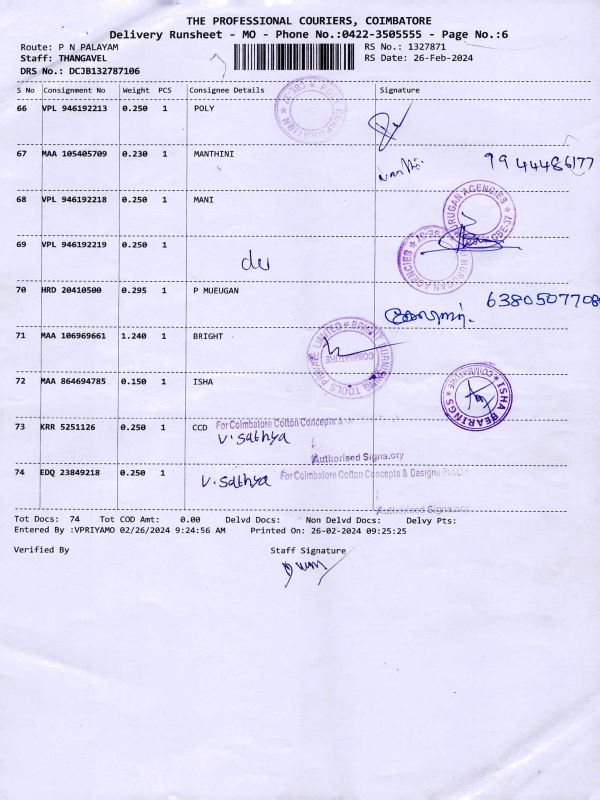 THE PROFESSIONAL COURIERS, COIMBATORE
Delivery Runsheet - MO - Phone No.:0422-3505555 - Page No.:6
Route: P N PALAYAM RS No.: 1327871
Staff: THANGAVEL RS Date: 26-Feb-2024
DRS No.: DCJB132787106
S No Consignment No Weight PCS Consignee Details Signature
66 VPL 946192213 0.250 1 POLY
67 MAA 105405709 0.230 1 MANTHINI 9944486177
68 VPL 946192218 0.250 1 MANI
69 VPL 946192219 0.250 1
70 HRD 20410500 0.295 1 P MUEUGAN 6380507708
71 MAA 106969661 1.240 1 BRIGHT
72 MAA 864694785 0.150 1 ISHA
ISHA BEARINGS
73 KRR 5251126 0.250 1 CCD For Coimbatore Cotton Concepts &
V. Sathya
Authorised Signatory
74 EDQ 23849218 0.250 1 V. Sathya For Coimbatore Cotton Concepts & Designs
Authorised Signatory
Tot Docs: 74 Tot COD Amt: 0.00 Delvd Docs: Non Delvd Docs: Delvy Pts:
Entered By :VPRIYAMO 02/26/2024 9:24:56 AM Printed On: 26-02-2024 09:25:25
Verified By Staff Signature